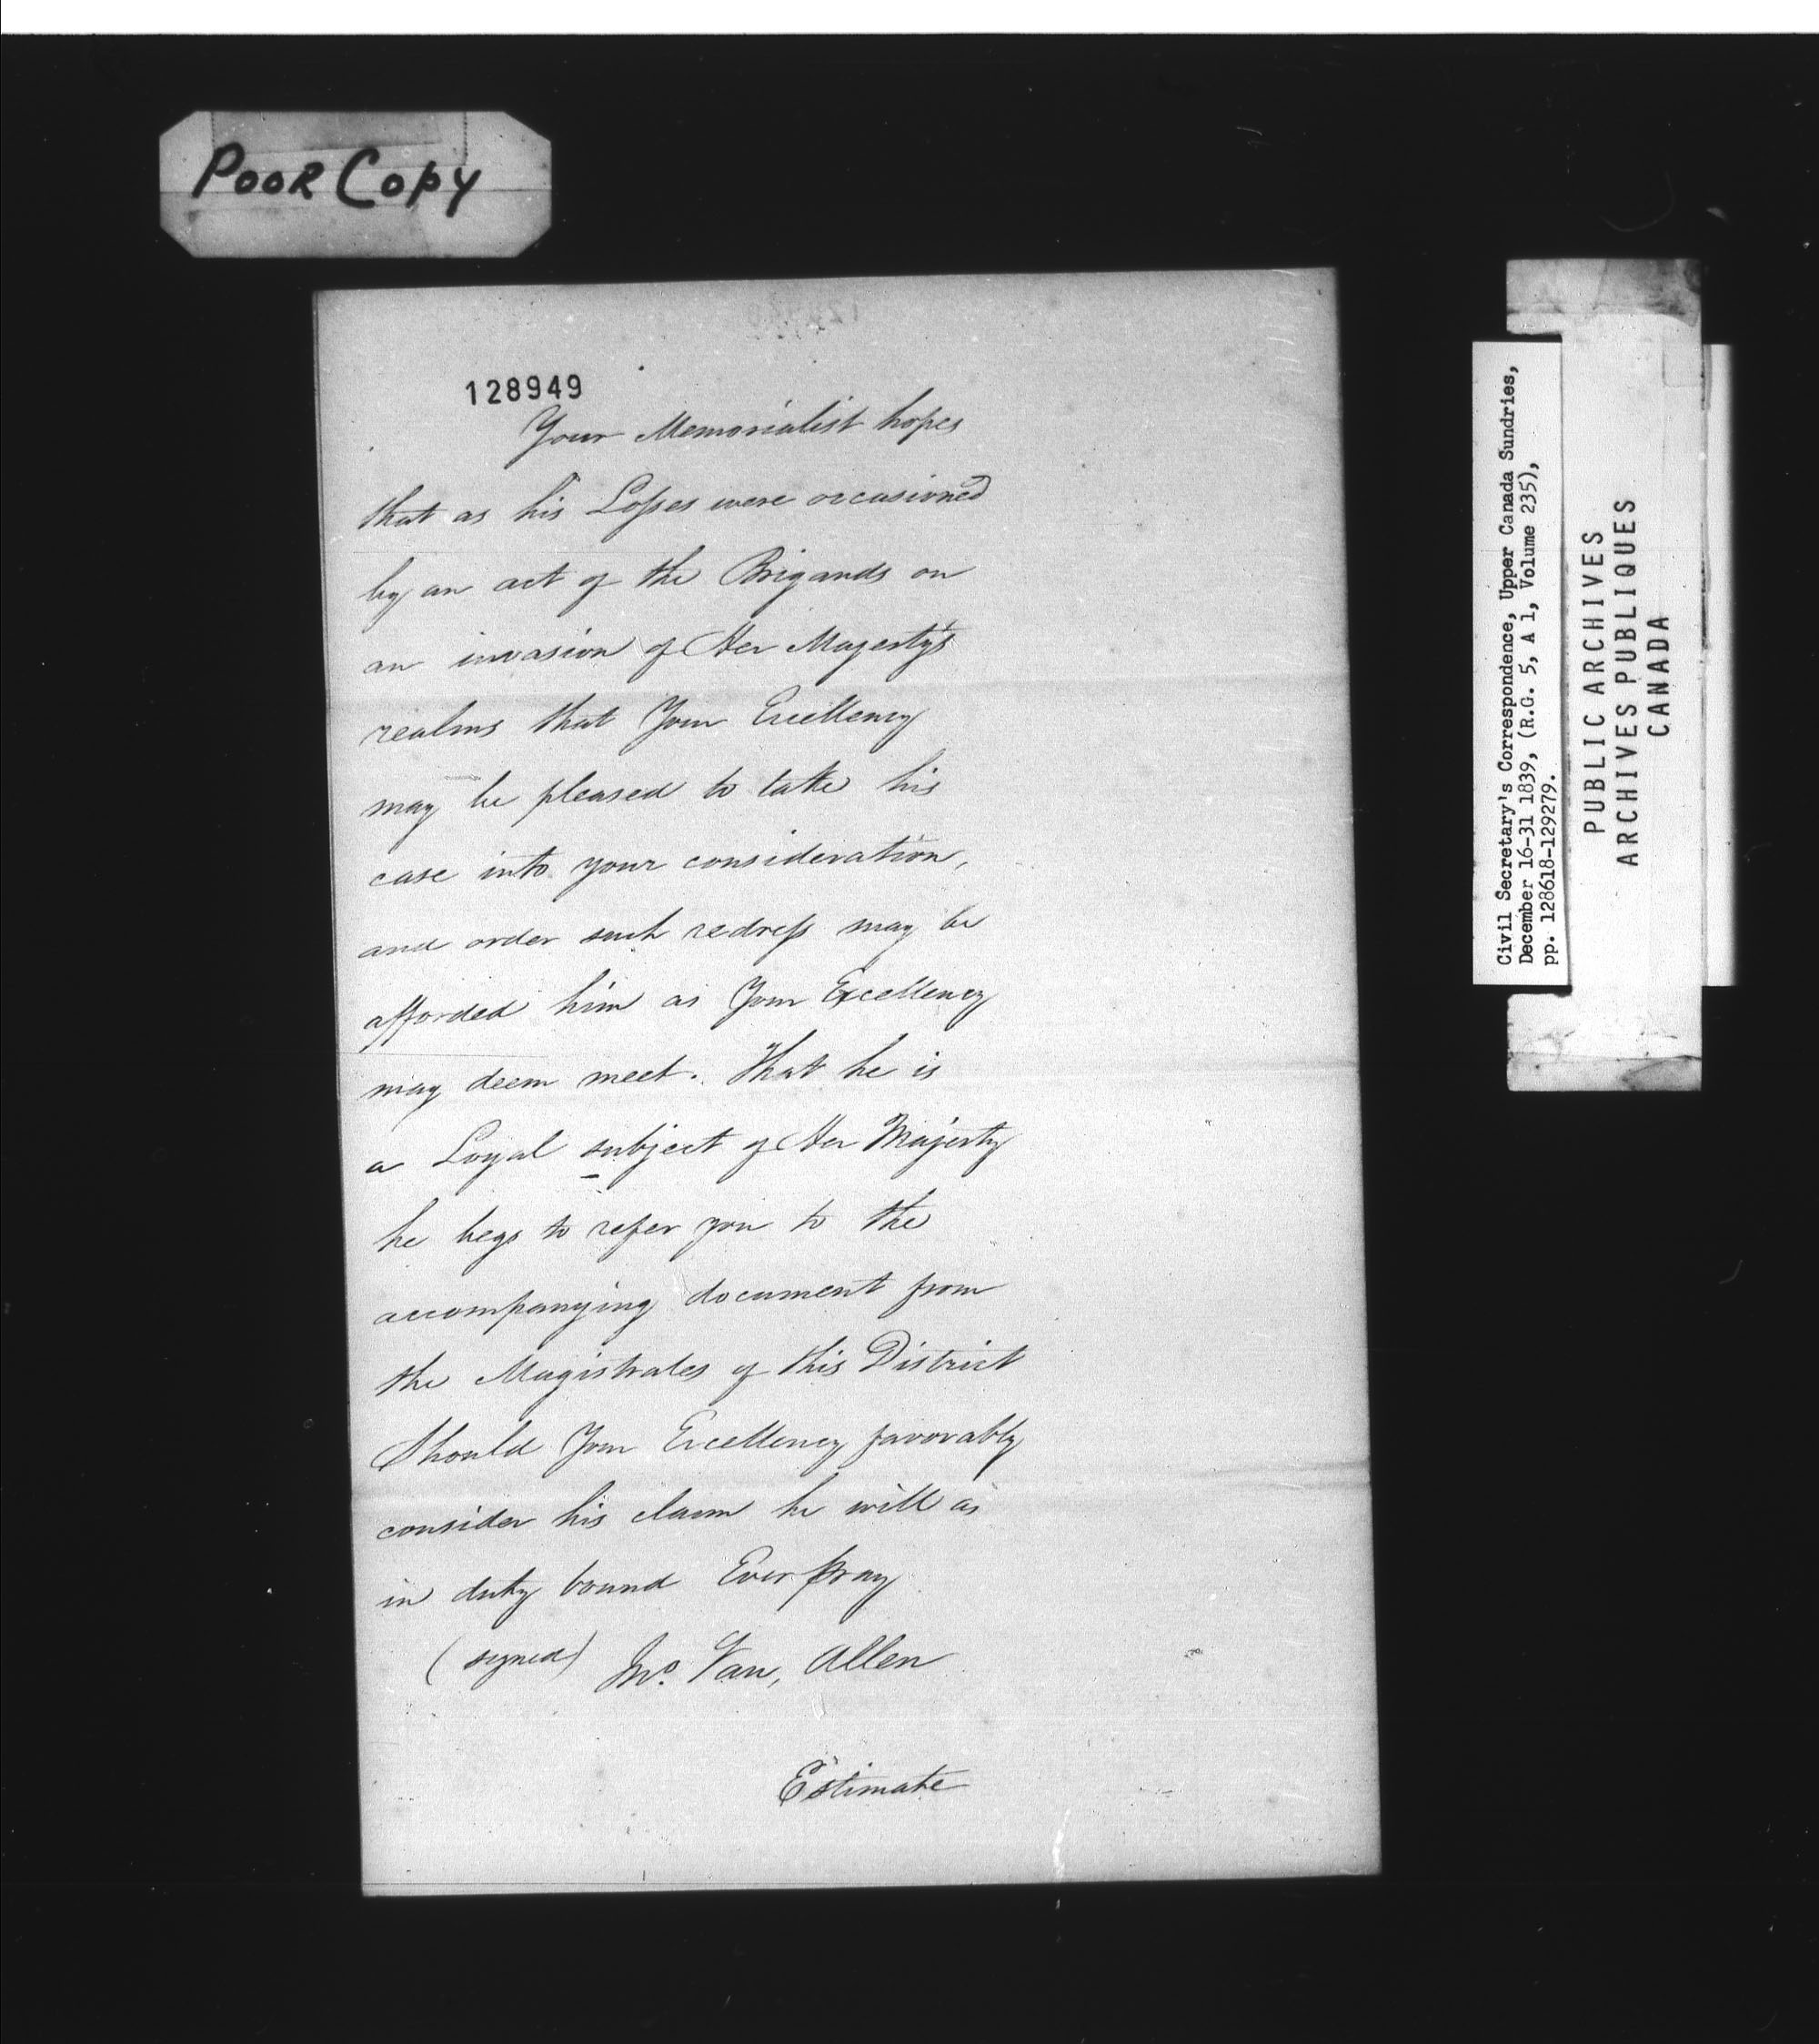 Poor Copy
128949
Your Memorialist hopes
that as his Losses were occasioned
by an act of the Brigands on
an invasion of Her Majesty's
realms that Your Excellency
may be pleased to take his
case into your consideration,
and order such redress may be
afforded him as Your Excellency
may deem meet. That he is
a Loyal subject of Her Majesty
he begs to refer you to the
accompanying document from
the Magistrates of this District
Should Your Excellency favorably
consider his claim he will as
in duty bound Ever pray
(signed) Jno. Van, Allen
Estimate
Civil Secretary's Correspondence, Upper Canada Sundries,
December 16-31 1839, (R.G. 5, A 1, Volume 235),
pp. 128618-129279.
PUBLIC ARCHIVES
ARCHIVES PUBLIQUES
CANADA